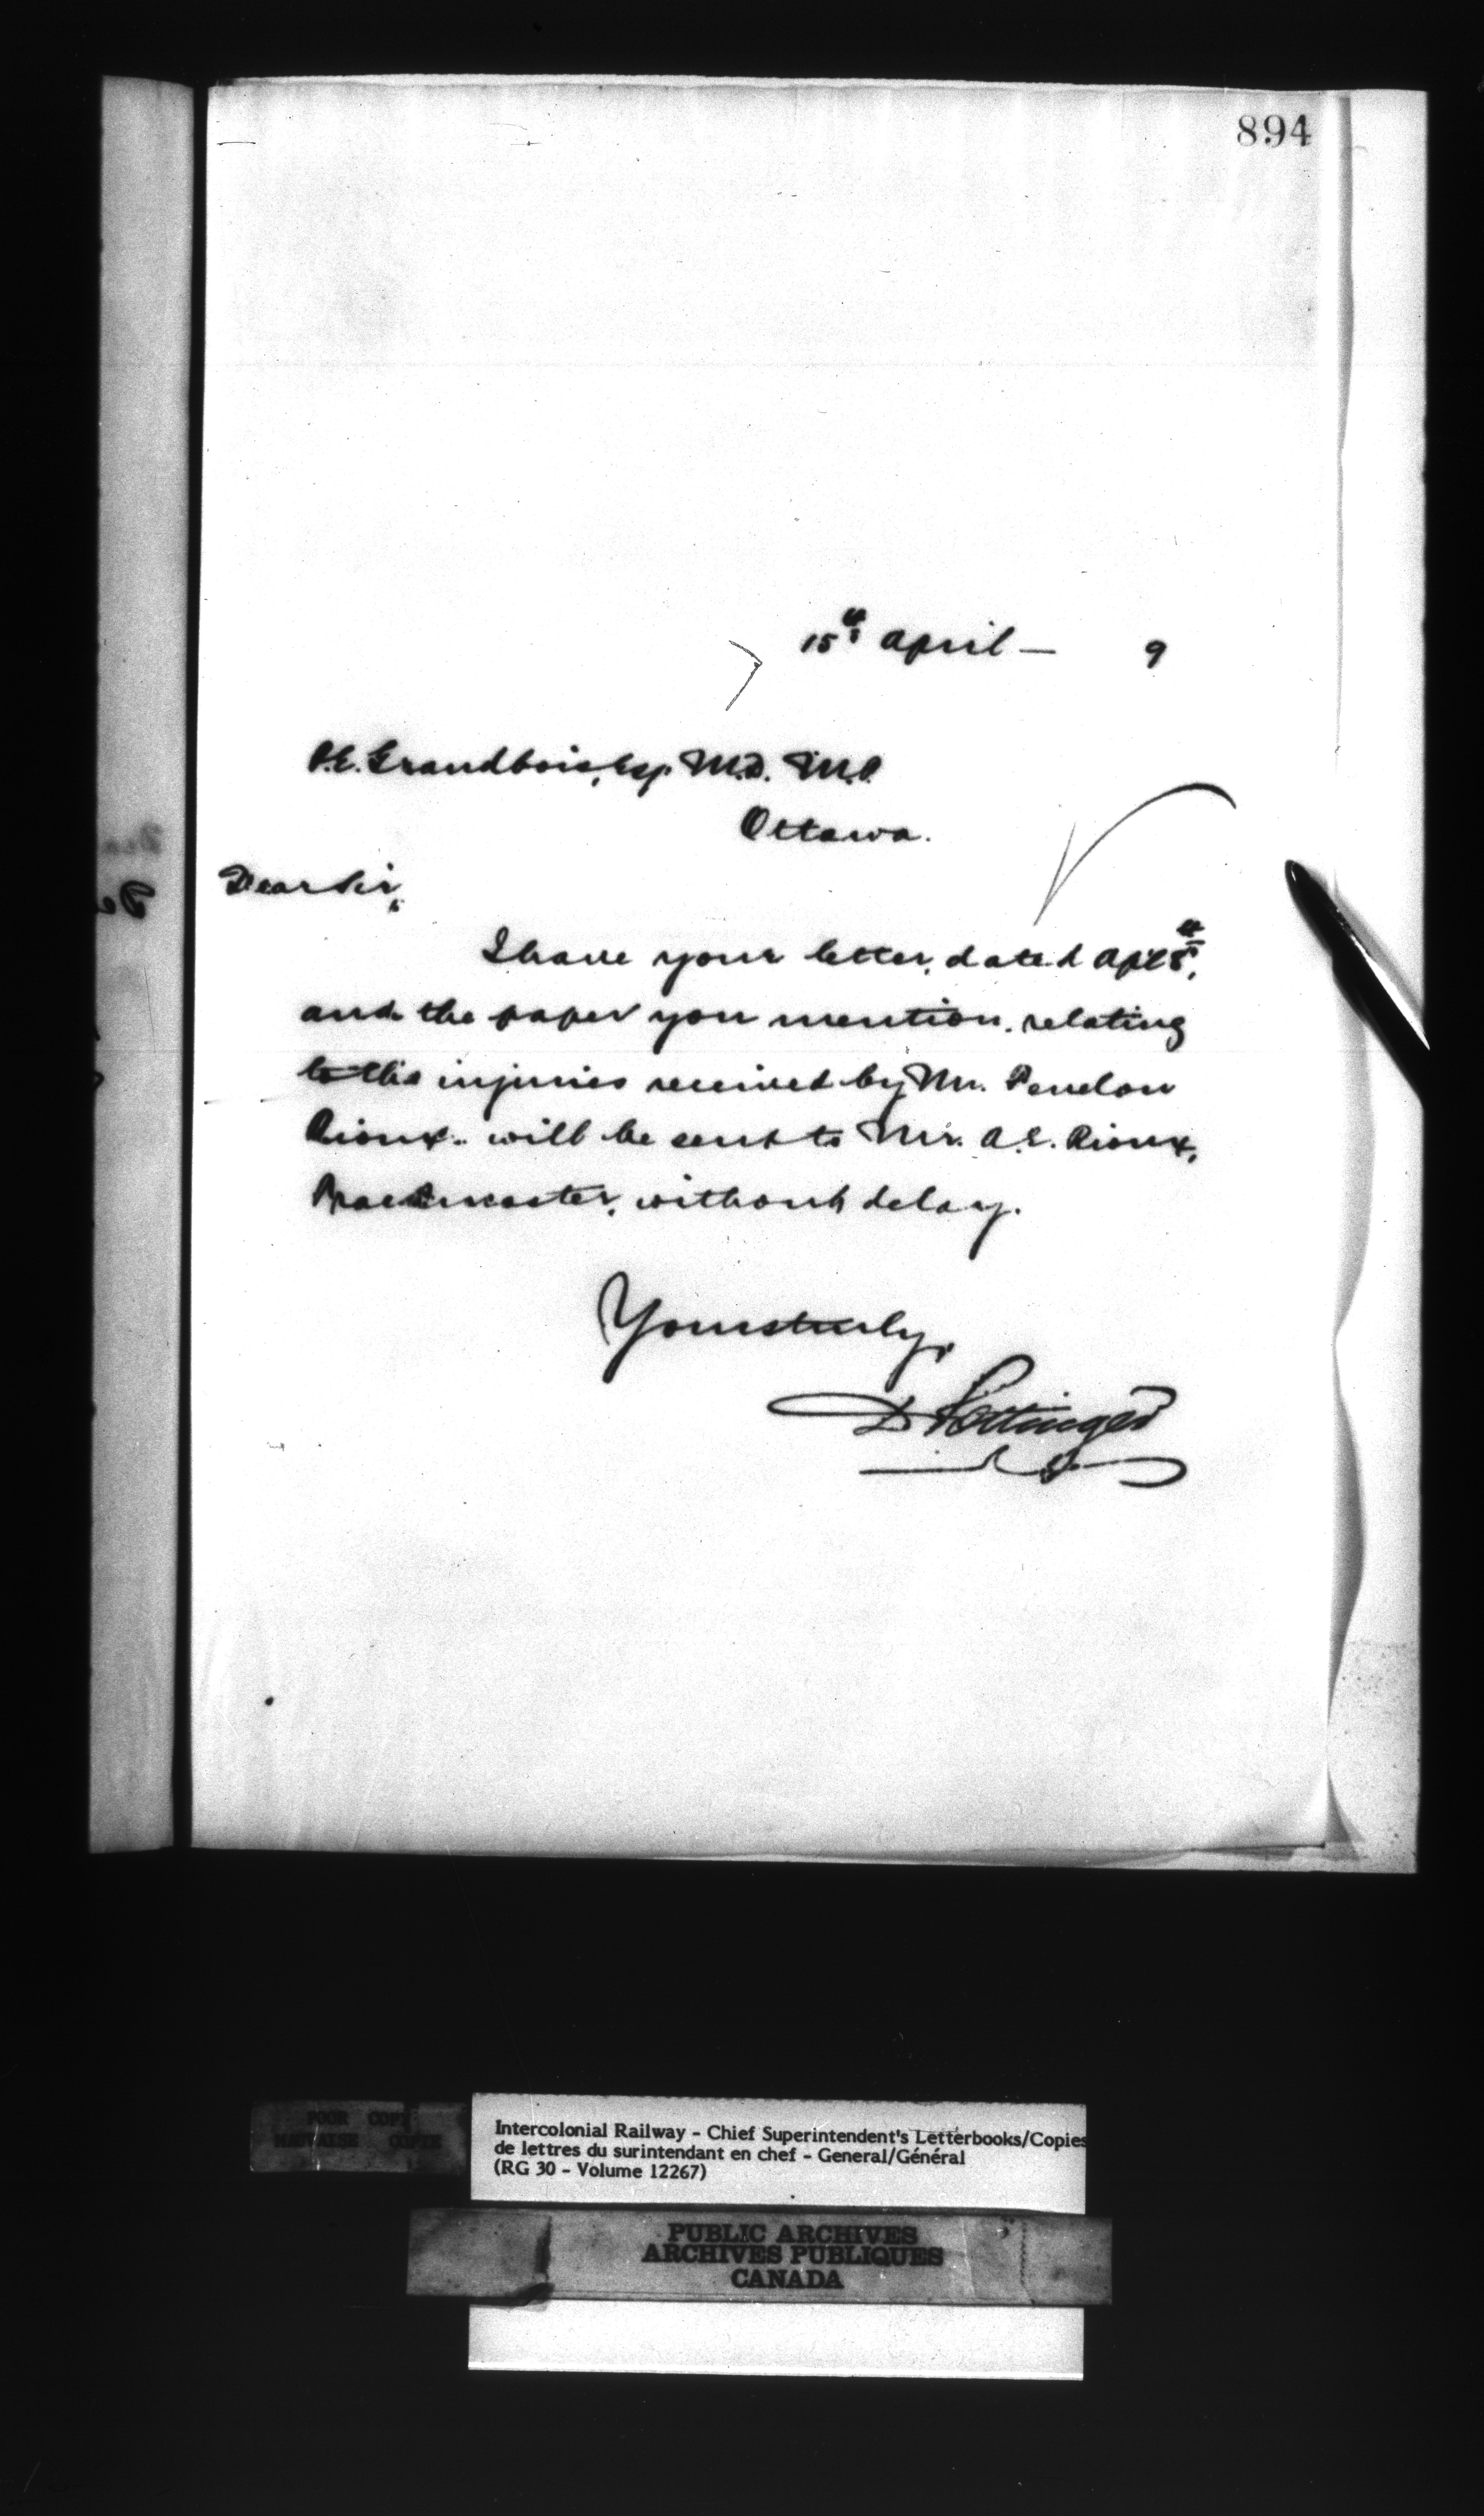 894
15th April — 9
P.E. Grandbois, Esq. M.D. M.P.
Ottawa.
Dear Sir,
I have your letter, dated Apl 8th,
and the paper you mention, relating
to the injuries received by Mr.
Rioux. will be sent to Mr. A.E. Rioux,
without delay.
Yours truly,
D Pottinger
POOR COPY
MAUVAISE COPIE
Intercolonial Railway - Chief Superintendent's Letterbooks/Copies
de lettres du surintendant en chef - General/Général
(RG 30 - Volume 12267)
PUBLIC ARCHIVES
ARCHIVES PUBLIQUES
CANADA